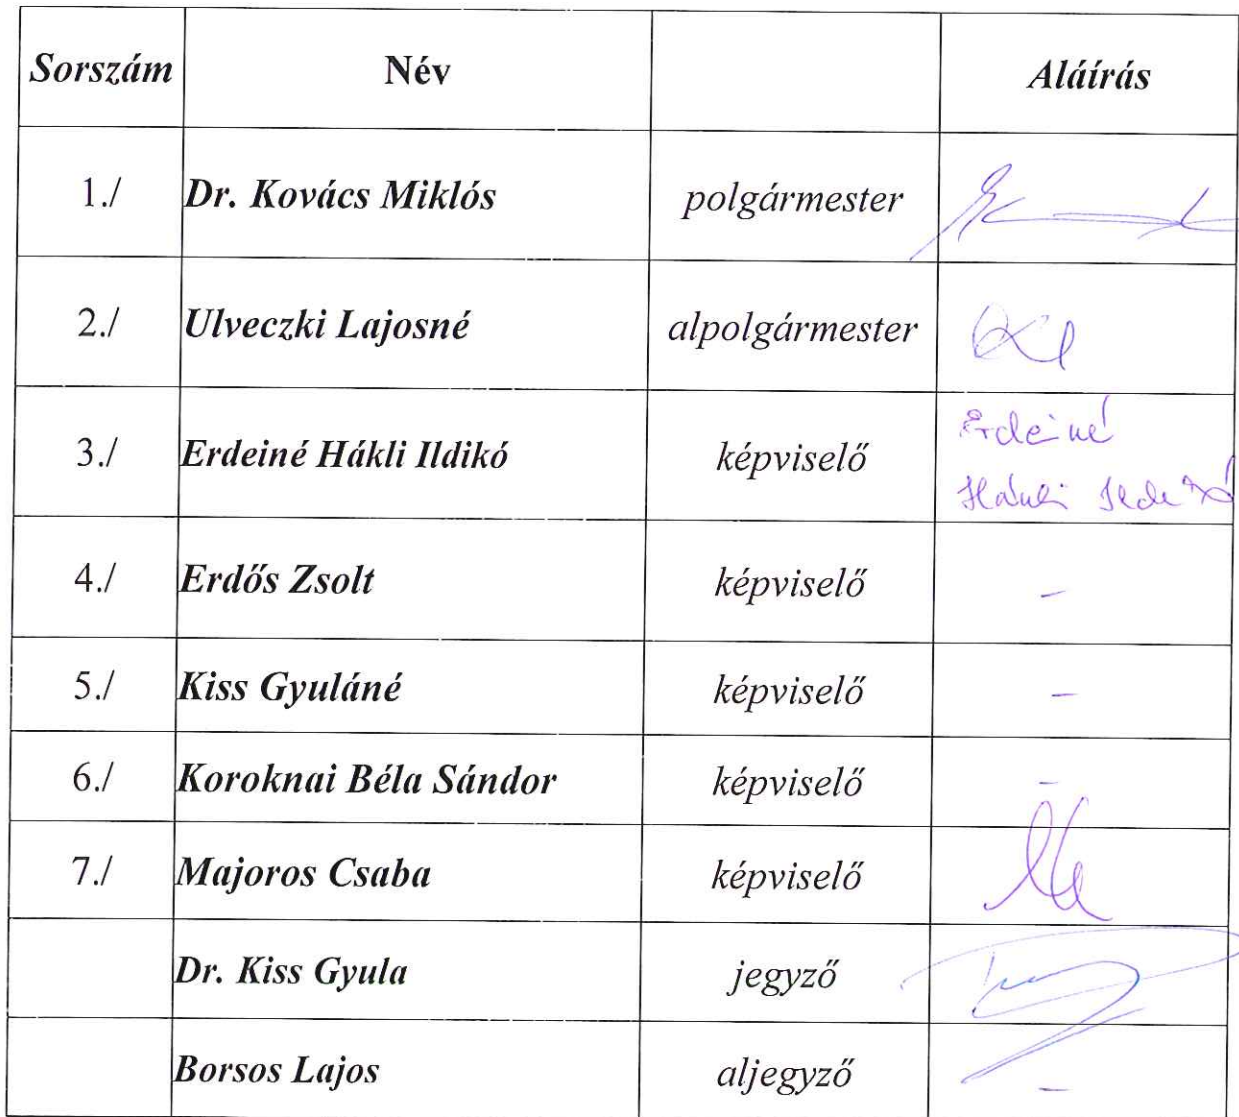 Sorszám Név Aláírás
1./ Dr. Kovács Miklós polgármester
2./ Ulveczki Lajosné alpolgármester
3./ Erdeiné Hákli Ildikó képviselő Erdeiné
Hákli Ildikó
4./ Erdős Zsolt képviselő -
5./ Kiss Gyuláné képviselő -
6./ Koroknai Béla Sándor képviselő -
7./ Majoros Csaba képviselő
Dr. Kiss Gyula jegyző
Borsos Lajos aljegyző -